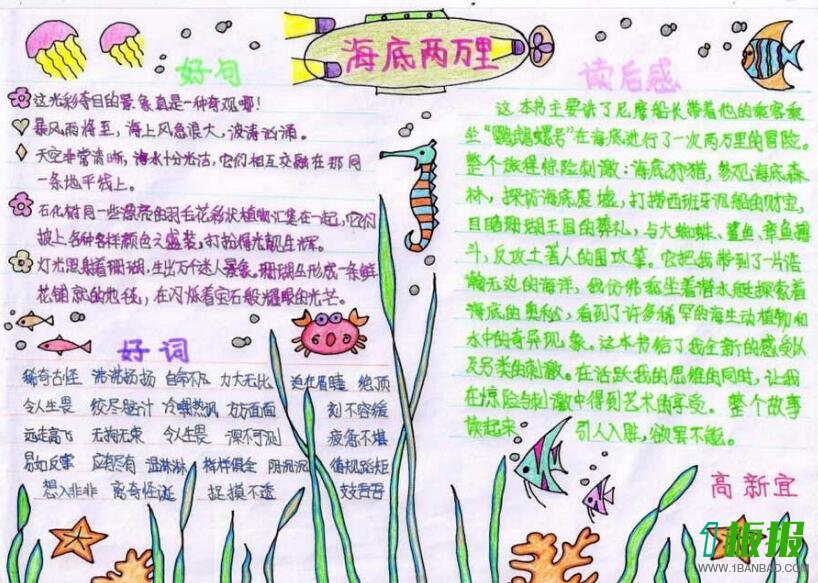 海底两万里
好句
这光彩夺目的景象真是一种奇观哪！
暴风雨将至，海上风急浪大，波涛汹涌。
天空非常清晰，海水十分光洁，它们相互交融在那同
一条地平线上。
石化树同一些漂亮的羽毛花形状植物汇集在一起，它们
披上各种各样颜色之盛装，打扮得光靓生辉。
灯光思射着珊瑚，生出万个迷人景象。珊瑚丛形成一条鲜
花铺就的地毯，在闪烁着宝石般耀眼的光芒。
好词
稀奇古怪 沸沸扬扬 自命不凡 力大无比 迫在眉睫 绝顶
令人生畏 绞尽脑计 冷嘲热讽 方方面面 刻不容缓
远走高飞 无拘无束 令人生畏 深不可测 疲惫不堪
易如反掌 应有尽有 湿淋淋 样样俱全 阴沉沉 循规蹈矩
想入非非 离奇怪诞 捉摸不透
读后感
这本书主要讲了尼摩船长带着他的乘客乘
坐“鹦鹉螺号”在海底进行了一次两万里的冒险。
整个旅程惊险刺激：海底狩猎，参观海底森
林，探访海底废墟，打捞西班牙沉船的财宝，
目睹珊瑚王国的葬礼，与大蜘蛛、鲨鱼、章鱼搏
斗，反攻土著人的围攻等。它把我带到了一片浩
瀚无边的海洋，我仿佛乘坐着潜水艇探索着
海底的奥秘，看到了许多稀罕的海生动植物和
水中的奇异现象。这本书给了我全新的感受以
及另类的刺激。在活跃我的思维的同时，让我
在惊险与刺激中得到艺术的享受。整个故事
读起来 引人入胜，欲罢不能。
高新宜
1板报
WWW.1BANBAO.COM